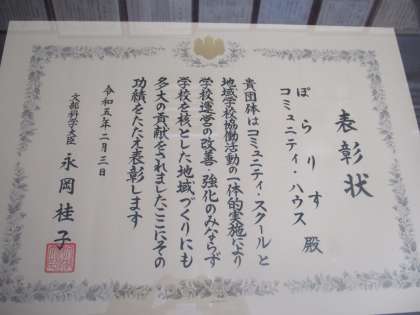 表彰状
ぽらりす
コミュニティ・ハウス 殿
貴団体はコミュニティ・スクールと
地域学校協働活動の一体的実施により
学校運営の改善・強化のみならず
学校を核とした地域づくりにも
多大の貢献をされましたここにその
功績をたたえ表彰します
令和五年二月三日
文部科学大臣 永岡桂子